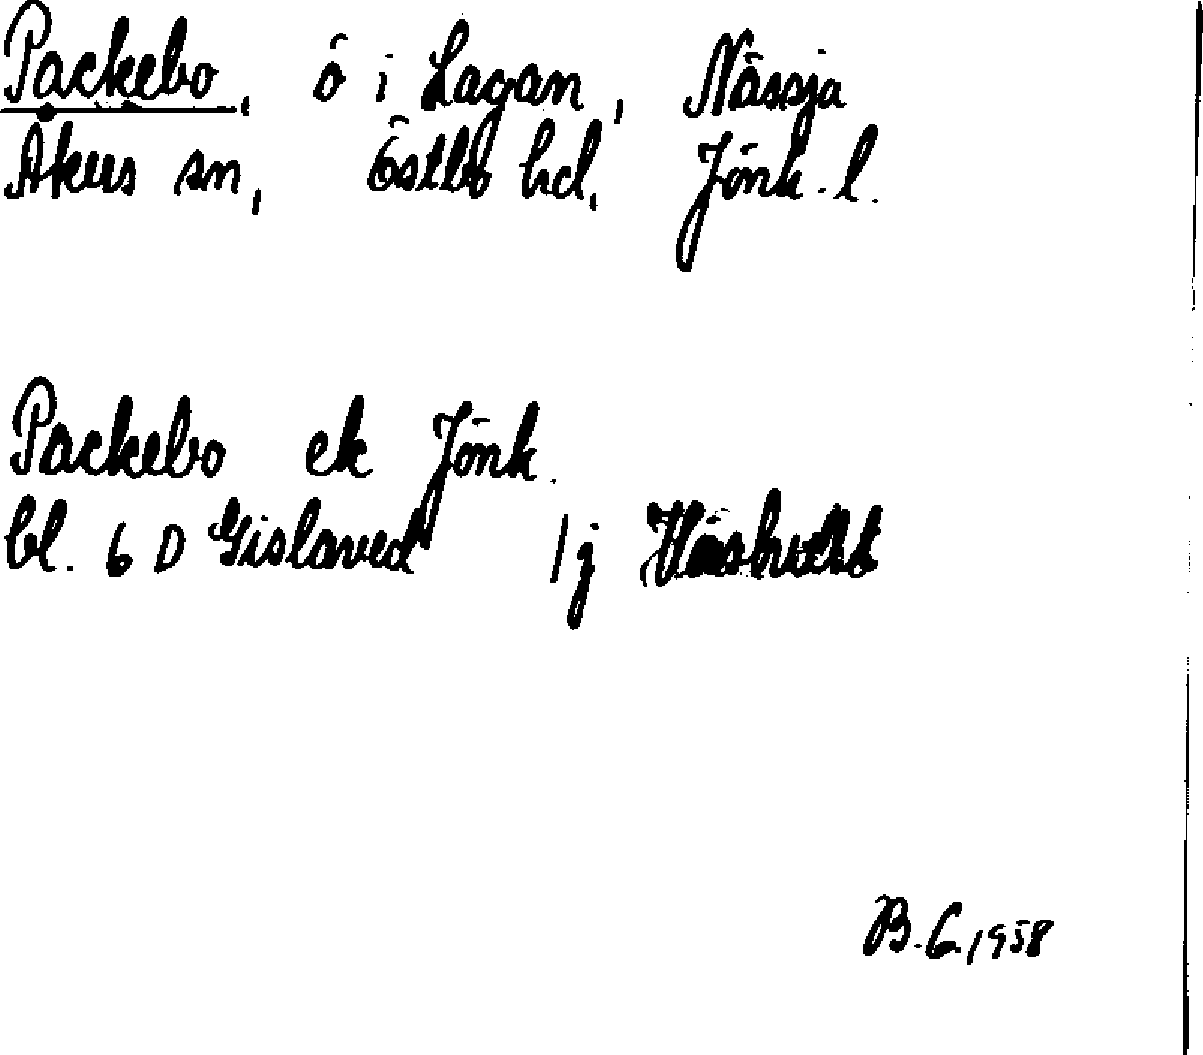 Packebo, ö i Lagan, Nässja
Åkers sn, Östbo hd, Jönk. l.
Packebo ek Jönk.
bl. 6 D Gislaved 1j
B. G. 1958